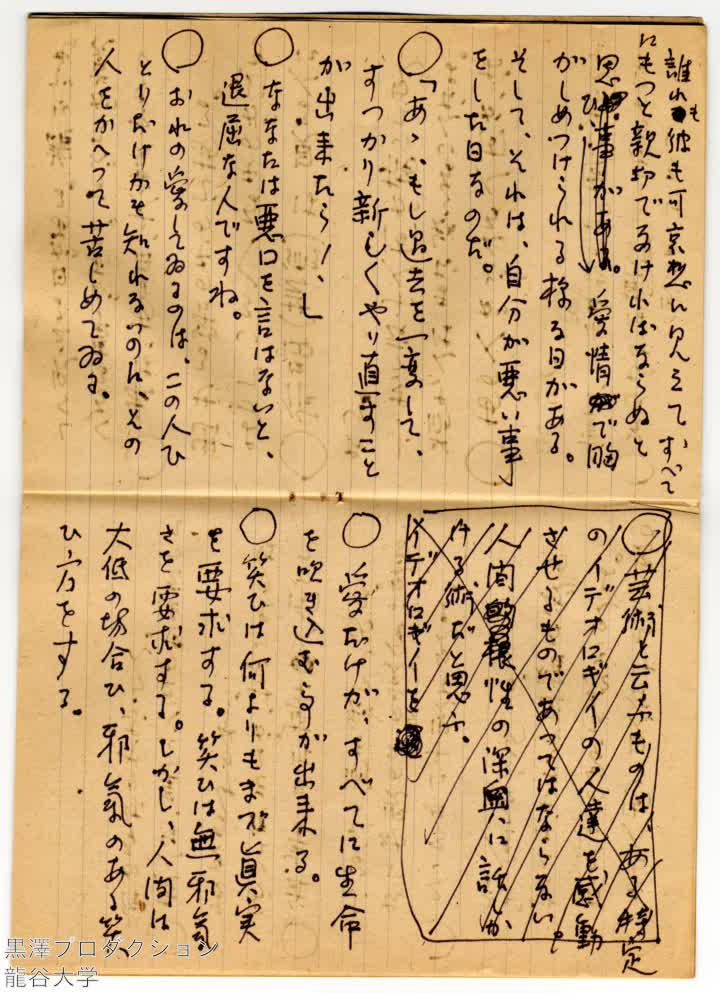 誰れも彼も可哀想に見えて、すべて
にもつと親切でなければならぬと
思ひ、愛情で胸
がしめつけられる様な日がある。
そして、それは、自分が悪い事
をした日なのだ。
○「あゝ、もし過去を一変して、
すつかり新しくやり直すこと
が出来たら!、」
○あなたは悪口を言はないと、
退屈な人ですね。
○おれの愛してゐるのは、この人ひ
とりだけかも知れないのに、その
人をかへつて苦しめてゐる。
○芸術と云ふものは、ある特定
のイデオロギイの人達を感動
させるものであつてはならない。
人間根性の深奥に話しか
ける術だと思ふ。
イデオロギイを
○愛だけが、すべてに生命
を吹き込む事が出来る。
○笑ひは何よりもまづ真実
を要求する。笑ひは無邪気
さを要求する。しかし、人間は
大低の場合ひ、邪気のある笑
ひ方をする。
黒澤プロダクション
龍谷大学